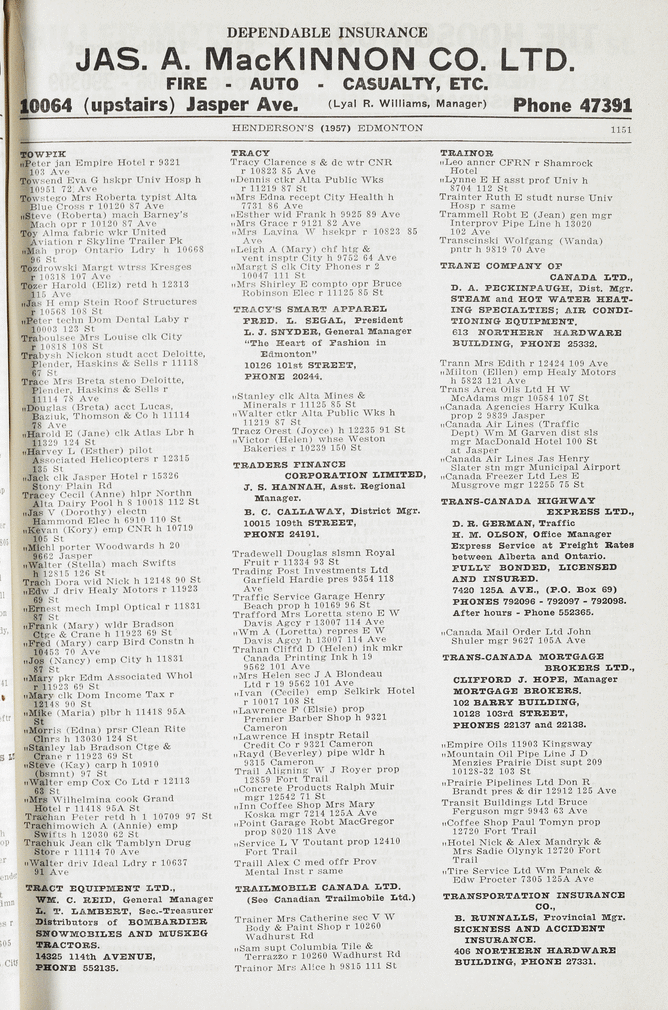 DEPENDABLE INSURANCE
JAS. A. MacKINNON CO. LTD.
FIRE - AUTO - CASUALTY, ETC.
10064 (upstairs) Jasper Ave. (Lyal R. Williams, Manager) Phone 47391
HENDERSON'S (1957) EDMONTON 1151
TOWPIK
„Peter jan Empire Hotel r 9321
103 Ave
Towsend Eva G hskpr Univ Hosp h
10951 72 Ave
Towstego Mrs Roberta typist Alta
Blue Cross r 10120 87 Ave
„Steve (Roberta) mach Barney's
Mach opr r 10120 87 Ave
Toy Alma fabric wkr United
Aviation r Skyline Trailer Pk
„Mah prop Ontario Ldry h 10668
96 St
Tozdrowski Margt wtrss Kresges
r 10318 107 Ave
Tozer Harold (Eliz) retd h 12313
115 Ave
„Jas H emp Stein Roof Structures
r 10568 108 St
„Peter techn Dom Dental Laby r
10003 123 St
Traboulsee Mrs Louise clk City
r 10818 108 St
Trabysh Nickon studt acct Deloitte,
Plender, Haskins & Sells r 11118
67 St
Trace Mrs Breta steno Deloitte,
Plender, Haskins & Sells r
11114 78 Ave
„Douglas (Breta) acct Lucas,
Baziuk, Thomson & Co h 11114
78 Ave
„Harold E (Jane) clk Atlas Lbr h
11329 124 St
„Harvey L (Esther) pilot
Associated Helicopters r 12315
135 St
„Jack clk Jasper Hotel r 15326
Stony Plain Rd
Tracey Cecil (Anne) hlpr Northn
Alta Dairy Pool h 8 10018 112 St
„Jas V (Dorothy) electn
Hammond Elec h 6910 110 St
„Kevan (Kory) emp CNR h 10719
105 St
„Michl porter Woodwards h 20
9662 Jasper
„Walter (Stella) mach Swifts
h 12815 126 St
Trach Dora wid Nick h 12148 90 St
„Edw J driv Healy Motors r 11923
69 St
„Ernest mech Impl Optical r 11831
87 St
„Frank (Mary) wldr Bradson
Ctge & Crane h 11923 69 St
„Fred (Mary) carp Bird Constn h
10453 70 Ave
„Jos (Nancy) emp City h 11831
87 St
„Mary pkr Edm Associated Whol
r 11923 69 St
„Mary clk Dom Income Tax r
12148 90 St
„Mike (Maria) plbr h 11418 95A
St
„Morris (Edna) prsr Clean Rite
Clnrs h 13030 124 St
„Stanley lab Bradson Ctge &
Crane r 11923 69 St
„Steve (Kay) carp h 10910
(bsmnt) 97 St
„Walter emp Cox Co Ltd r 12113
63 St
„Mrs Wilhelmina cook Grand
Hotel r 11418 95A St
Trachan Peter retd h 1 10709 97 St
Trachimowich A (Annie) emp
Swifts h 12030 62 St
Trachuk Jean clk Tamblyn Drug
Store r 11114 70 Ave
„Walter driv Ideal Ldry r 10637
91 Ave
TRACT EQUIPMENT LTD.,
WM. C. REID, General Manager
L. T. LAMBERT, Sec.-Treasurer
Distributors of BOMBARDIER
SNOWMOBILES AND MUSKEG
TRACTORS.
14325 114th AVENUE,
PHONE 552135.
TRACY
Tracy Clarence s & dc wtr CNR
r 10823 85 Ave
„Dennis ctkr Alta Public Wks
r 11219 87 St
„Mrs Edna recept City Health h
7731 86 Ave
„Esther wid Frank h 9925 89 Ave
„Mrs Grace r 9121 82 Ave
„Mrs Lavina W hsekpr r 10823 85
Ave
„Leigh A (Mary) chf htg &
vent insptr City h 9752 64 Ave
„Margt S clk City Phones r 2
10047 111 St
„Mrs Shirley E compto opr Bruce
Robinson Elec r 11125 85 St
TRACY'S SMART APPAREL
FRED. L. SEGAL, President
L. J. SNYDER, General Manager
"The Heart of Fashion in
Edmonton"
10126 101st STREET,
PHONE 20244.
„Stanley clk Alta Mines &
Minerals r 11125 85 St
„Walter ctkr Alta Public Wks h
11219 87 St
Tracz Orest (Joyce) h 12235 91 St
„Victor (Helen) whse Weston
Bakeries r 10239 150 St
TRADERS FINANCE
CORPORATION LIMITED,
J. S. HANNAH, Asst. Regional
Manager.
B. C. CALLAWAY, District Mgr.
10015 109th STREET,
PHONE 24191.
Tradewell Douglas slsmn Royal
Fruit r 11334 93 St
Trading Post Investments Ltd
Garfield Hardie pres 9354 118
Ave
Traffic Service Garage Henry
Beach prop h 10169 96 St
Trafford Mrs Loretta steno E W
Davis Agcy r 13007 114 Ave
„Wm A (Loretta) repres E W
Davis Agcy h 13007 114 Ave
Trahan Cliffd D (Helen) ink mkr
Canada Printing Ink h 19
9562 101 Ave
„Mrs Helen sec J A Blondeau
Ltd r 19 9562 101 Ave
„Ivan (Cecile) emp Selkirk Hotel
r 10017 108 St
„Lawrence F (Elsie) prop
Premier Barber Shop h 9321
Cameron
„Lawrence H insptr Retail
Credit Co r 9321 Cameron
„Rayd (Beverley) pipe wldr h
9315 Cameron
Trail Aligning W J Royer prop
12859 Fort Trail
„Concrete Products Ralph Muir
mgr 12542 71 St
„Inn Coffee Shop Mrs Mary
Koska mgr 7214 125A Ave
„Point Garage Robt MacGregor
prop 8020 118 Ave
„Service L V Toutant prop 12410
Fort Trail
Traill Alex C med offr Prov
Mental Inst r same
TRAILMOBILE CANADA LTD.
(See Canadian Trailmobile Ltd.)
Trainer Mrs Catherine sec V W
Body & Paint Shop r 10260
Wadhurst Rd
„Sam supt Columbia Tile &
Terrazzo r 10260 Wadhurst Rd
Trainor Mrs Alice h 9815 111 St
TRAINOR
„Leo anncr CFRN r Shamrock
Hotel
„Lynne E H asst prof Univ h
8704 112 St
Trainter Ruth E studt nurse Univ
Hosp r same
Trammell Robt E (Jean) gen mgr
Interprov Pipe Line h 13020
102 Ave
Transcinski Wolfgang (Wanda)
pntr h 9819 70 Ave
TRANE COMPANY OF
CANADA LTD.,
D. A. PECKINPAUGH, Dist. Mgr.
STEAM and HOT WATER HEAT-
ING SPECIALTIES; AIR CONDI-
TIONING EQUIPMENT,
613 NORTHERN HARDWARE
BUILDING, PHONE 25332.
Trann Mrs Edith r 12424 109 Ave
„Milton (Ellen) emp Healy Motors
h 5823 121 Ave
Trans Area Oils Ltd H W
McAdams mgr 10584 107 St
„Canada Agencies Harry Kulka
prop 2 9839 Jasper
„Canada Air Lines (Traffic
Dept) Wm M Garven dist sls
mgr MacDonald Hotel 100 St
at Jasper
„Canada Air Lines Jas Henry
Slater stn mgr Municipal Airport
„Canada Freezer Ltd Les E
Musgrove mgr 12255 75 St
TRANS-CANADA HIGHWAY
EXPRESS LTD.,
D. R. GERMAN, Traffic
H. M. OLSON, Office Manager
Express Service at Freight Rates
between Alberta and Ontario.
FULLY BONDED, LICENSED
AND INSURED.
7420 125A AVE., (P.O. Box 69)
PHONES 792096 - 792097 - 792098.
After hours - Phone 552365.
„Canada Mail Order Ltd John
Shuler mgr 9627 105A Ave
TRANS-CANADA MORTGAGE
BROKERS LTD.,
CLIFFORD J. HOPE, Manager
MORTGAGE BROKERS.
102 BARRY BUILDING,
10128 103rd STREET,
PHONES 22137 and 22138.
„Empire Oils 11903 Kingsway
„Mountain Oil Pipe Line J D
Menzies Prairie Dist supt 209
10128-32 103 St
„Prairie Pipelines Ltd Don R
Brandt pres & dir 12912 125 Ave
Transit Buildings Ltd Bruce
Ferguson mgr 9943 63 Ave
„Coffee Shop Paul Tomyn prop
12720 Fort Trail
„Hotel Nick & Alex Mandryk &
Mrs Sadie Olynyk 12720 Fort
Trail
„Tire Service Ltd Wm Panek &
Edw Procter 7305 125A Ave
TRANSPORTATION INSURANCE
CO.,
B. RUNNALLS, Provincial Mgr.
SICKNESS AND ACCIDENT
INSURANCE.
406 NORTHERN HARDWARE
BUILDING, PHONE 27331.